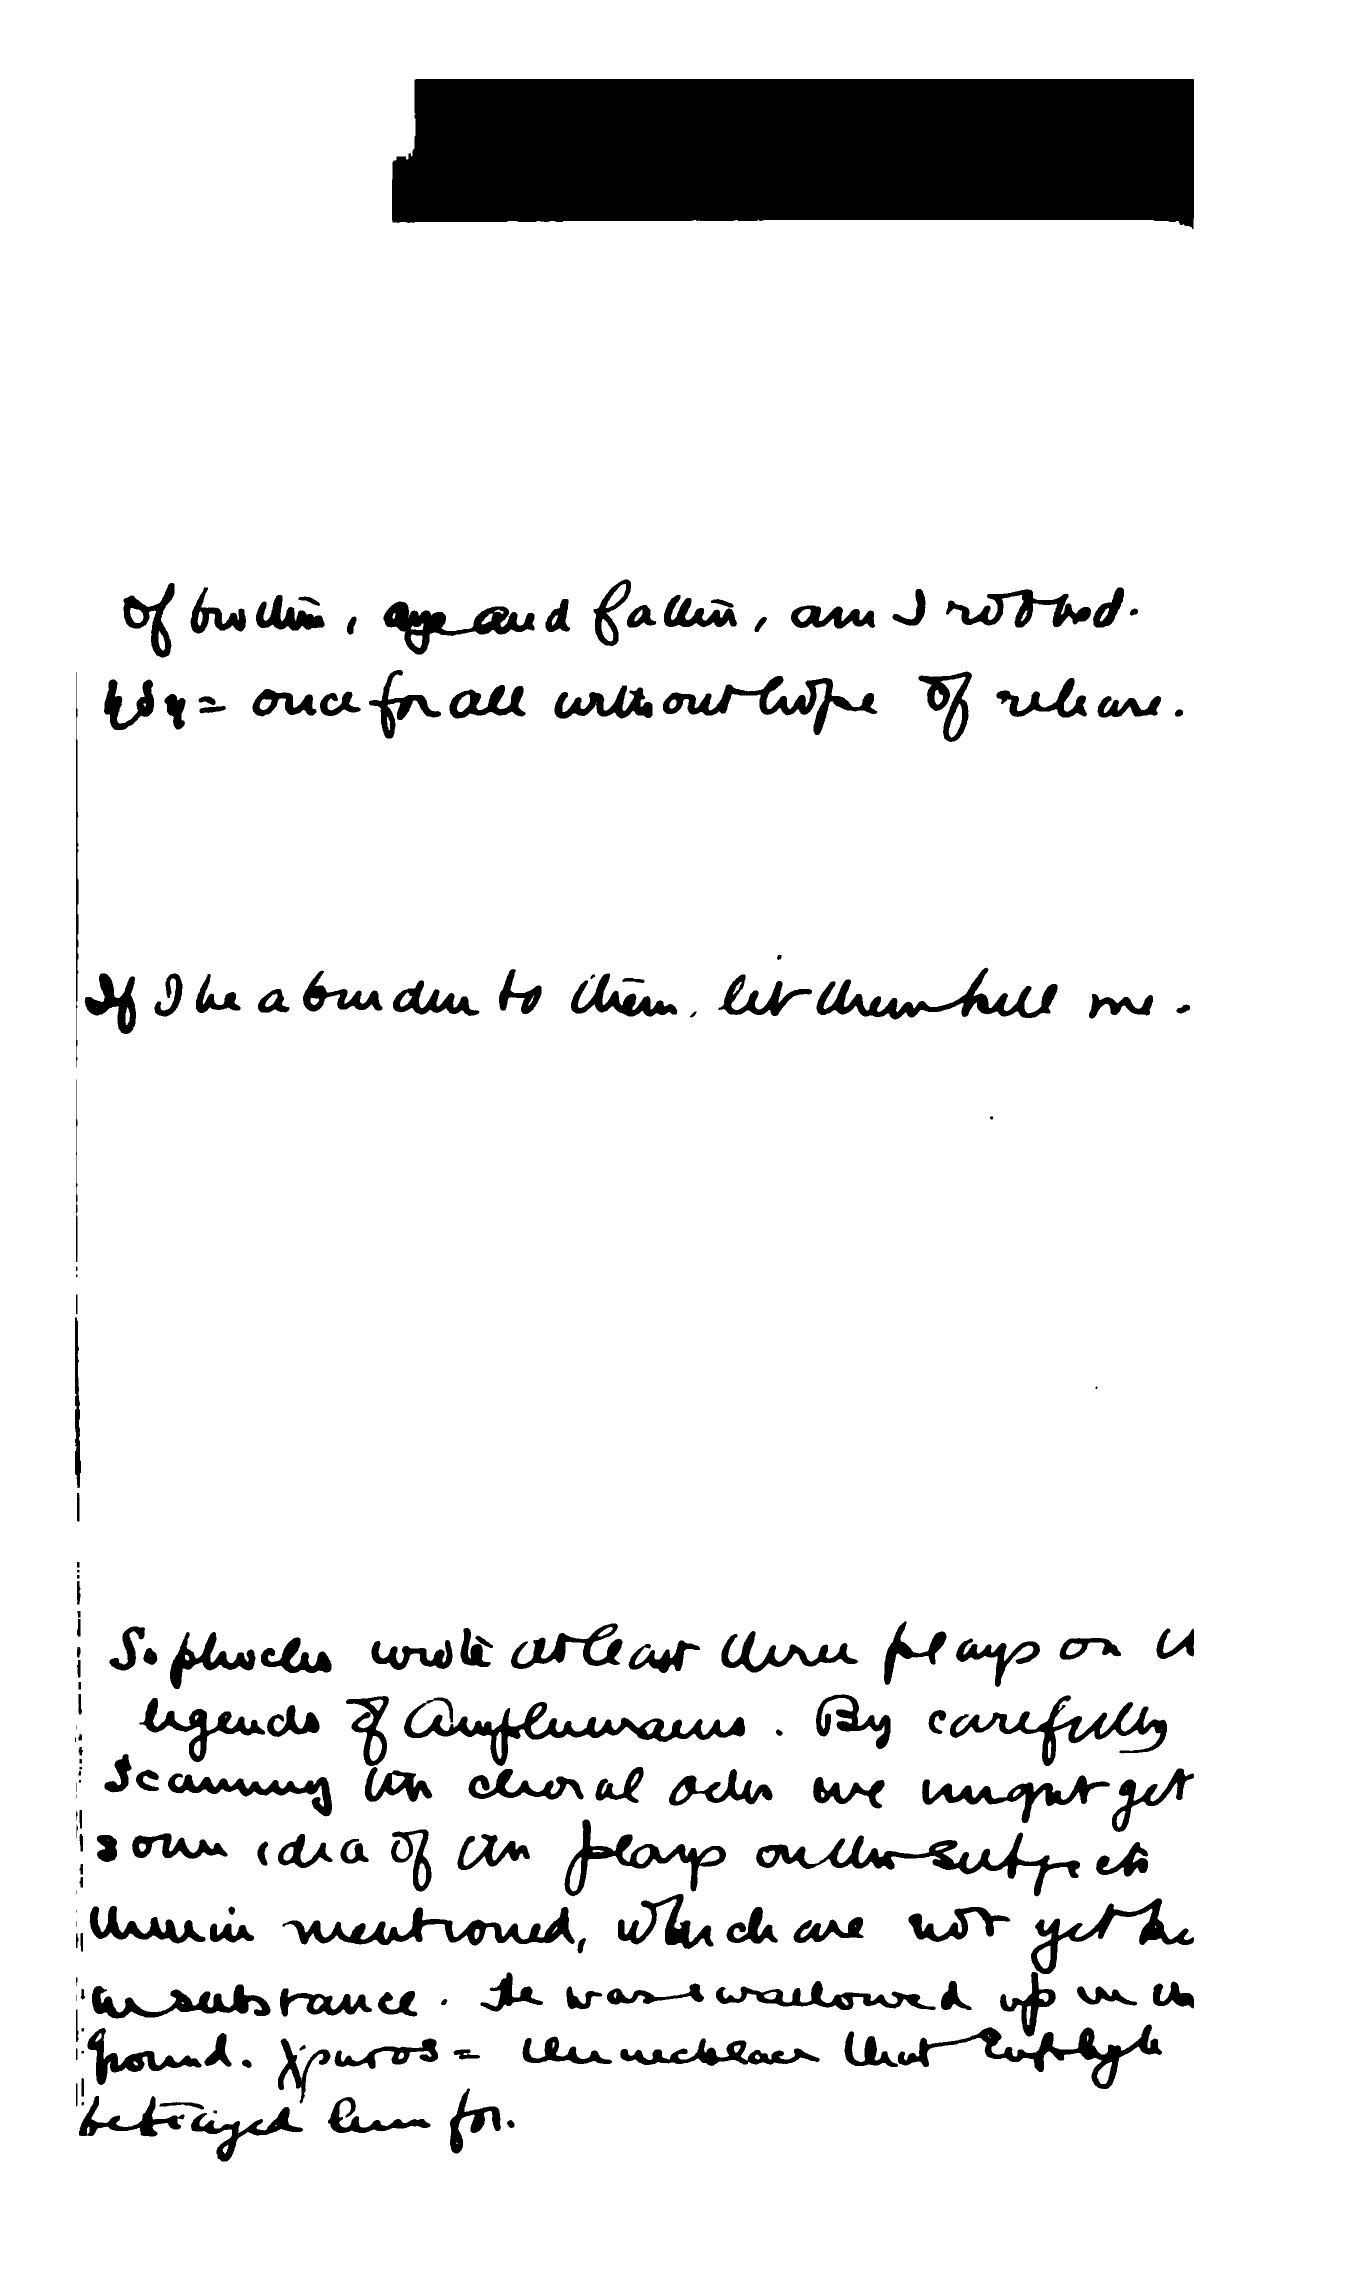 Of brother, aye and father, am I robbed.
ἤδη = once for all without hope of release.
If I be a burden to them, let them kill me.
Sophocles wrote at least three plays on
legends of Amphiaraus. By carefully
scanning the choral odes we might get
some idea of the plays on the subjects
therein mentioned, which are not yet
in substance. He was swallowed up in the
ground. χρυσος = the necklace that
betrayed him for.